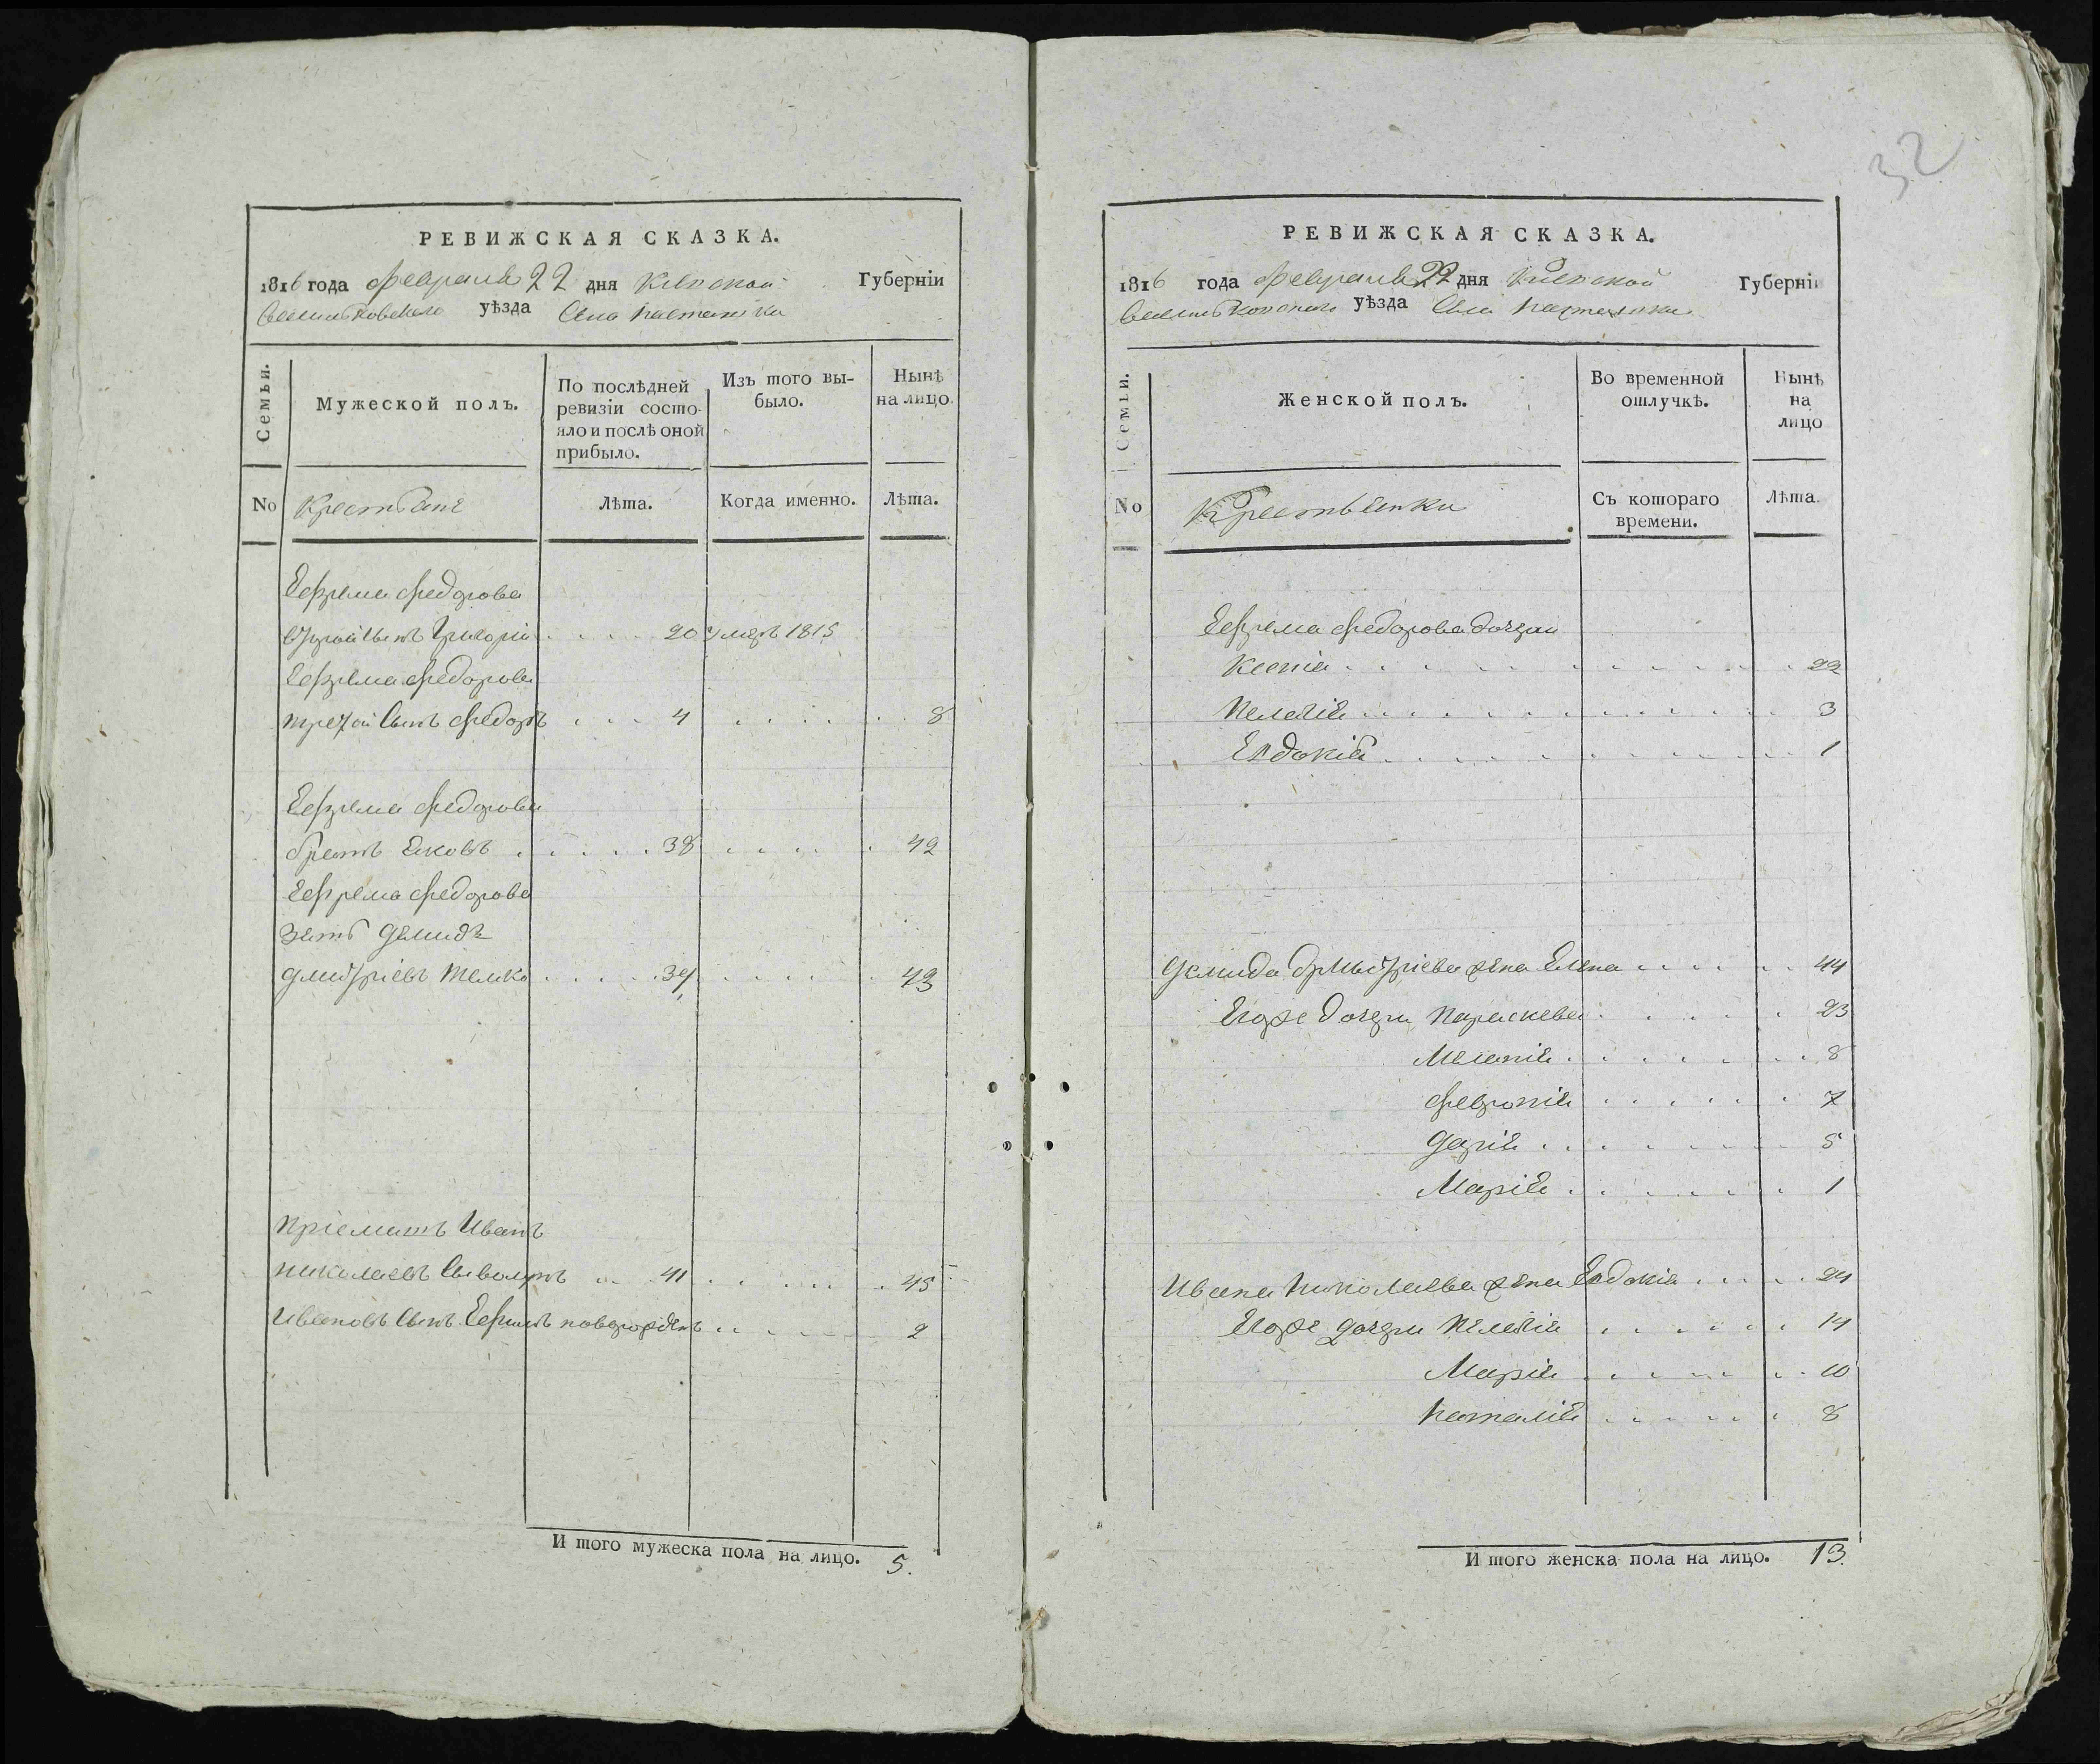 РЕВИЖСКАЯ СКАЗКА.
1816 года февраля 22 дня Киевской Губерніи
Васильковскаго уѣзда Села Насташки
Семьи.
Мужеской полъ.
По послѣдней ревизіи состо-
яло и послѣ оной
прибыло.
Изъ того вы-
было.
Нынѣ
на лицо.
No
Крестьяне
Лѣта.
Когда именно.
Лѣта.
Ефрема Федорова
вторый сынъ Григорій 20 умеръ 1815
Ефрема Федорова
третій сынъ Федоръ 4 8
Ефрема Федорова
братъ Яковъ 38 42
Ефрема Федорова
зять Демидъ
Дмитріевъ 39 43
Пріемышъ Иванъ
Николаевъ 41 45
Ивановъ сынъ Ефимъ новорожденъ 2
И того мужеска пола на лицо. 5.
32
РЕВИЖСКАЯ СКАЗКА.
1816 года февраля 22 дня Киевской Губерніи
Васильковскаго уѣзда Села Насташки
Семьи.
Женской полъ.
Во временной
отлучкѣ.
Нынѣ
на
лицо
No
Крестьянки
Съ котораго
времени.
Лѣта.
Ефрема Федорова дочери
Ксенія 22
Пелагія 3
Евдокія 1
Демида Дмытріева жена Елена 44
Егоже дочери Параскева 23
Меланія 8
Февронія 7
Дарія 5
Марія 1
Ивана Николаева жена Евдокія 24
Егоже дочери Пелагія 14
Марія 10
Наталія 8
И того женска пола на лицо. 13.